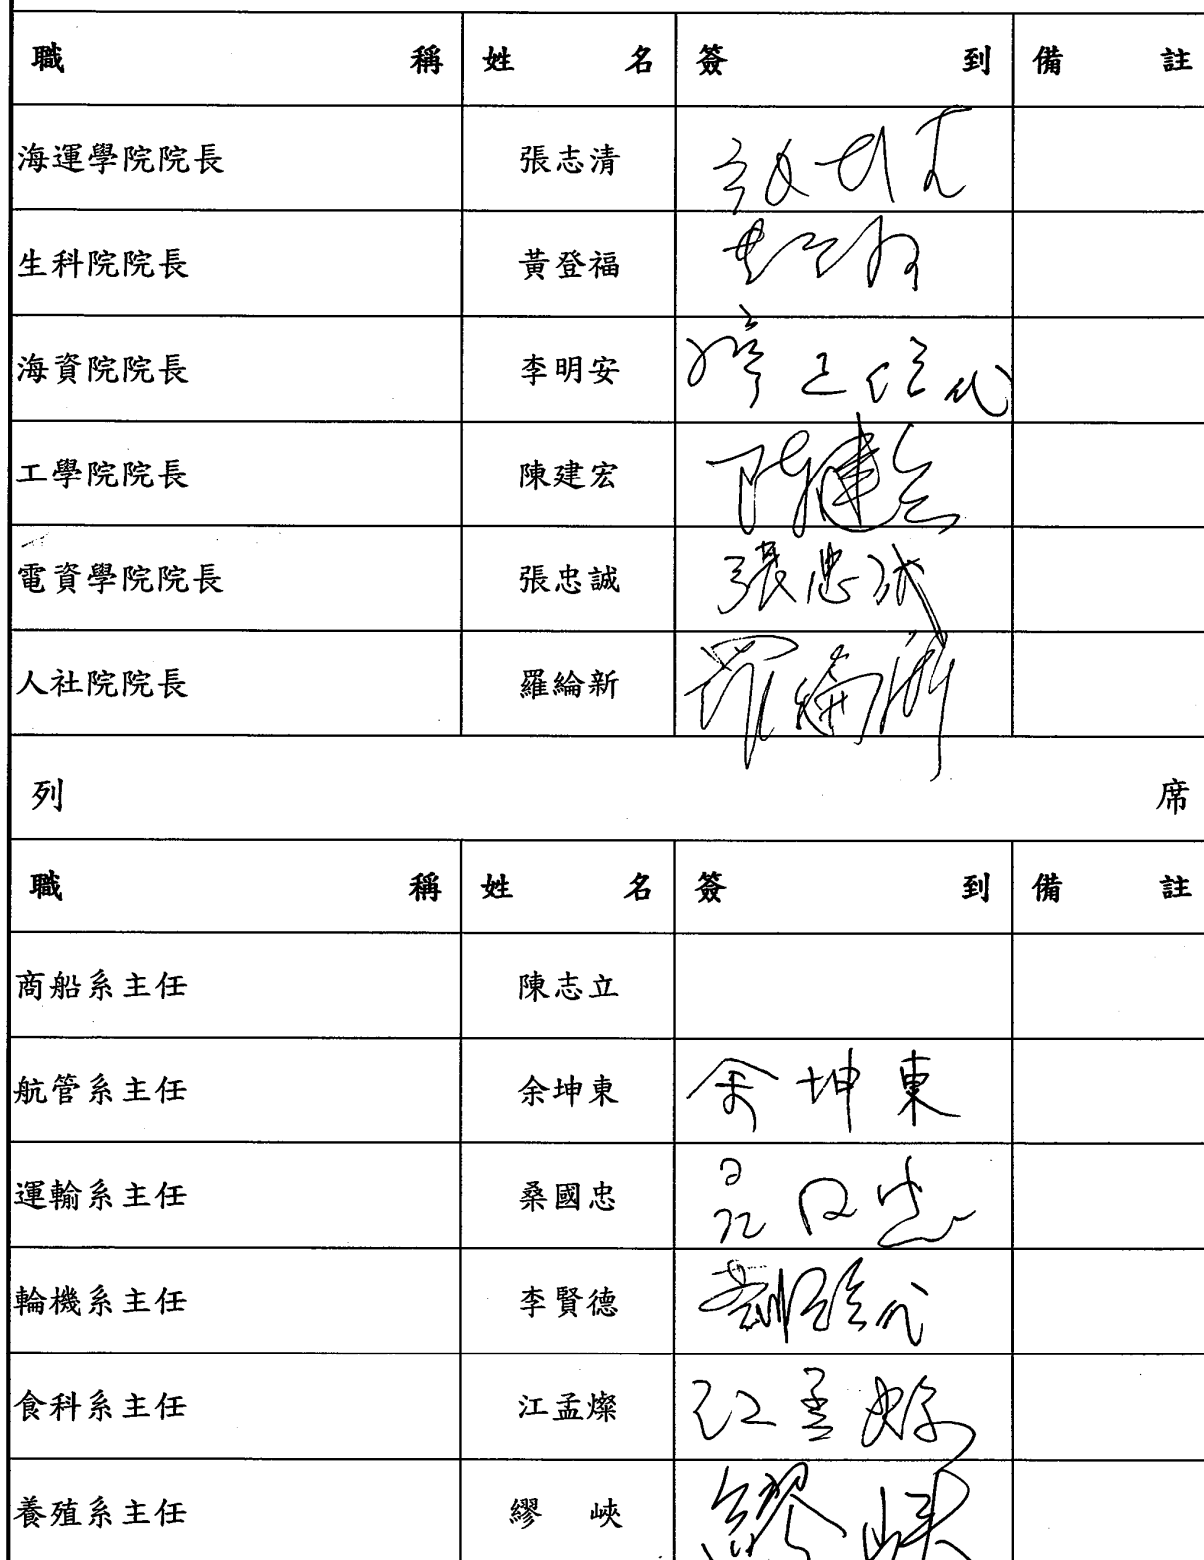 職稱 姓名 簽到 備註
海運學院院長 張志清 張志清
生科院院長 黃登福 黃登福
海資院院長 李明安 代
工學院院長 陳建宏 陳建宏
電資學院院長 張忠誠 張忠誠
人社院院長 羅綸新 羅綸新
列席
職稱 姓名 簽到 備註
商船系主任 陳志立
航管系主任 余坤東 余坤東
運輸系主任 桑國忠 桑國忠
輪機系主任 李賢德 代
食科系主任 江孟燦 江孟燦
養殖系主任 繆峽 繆峽